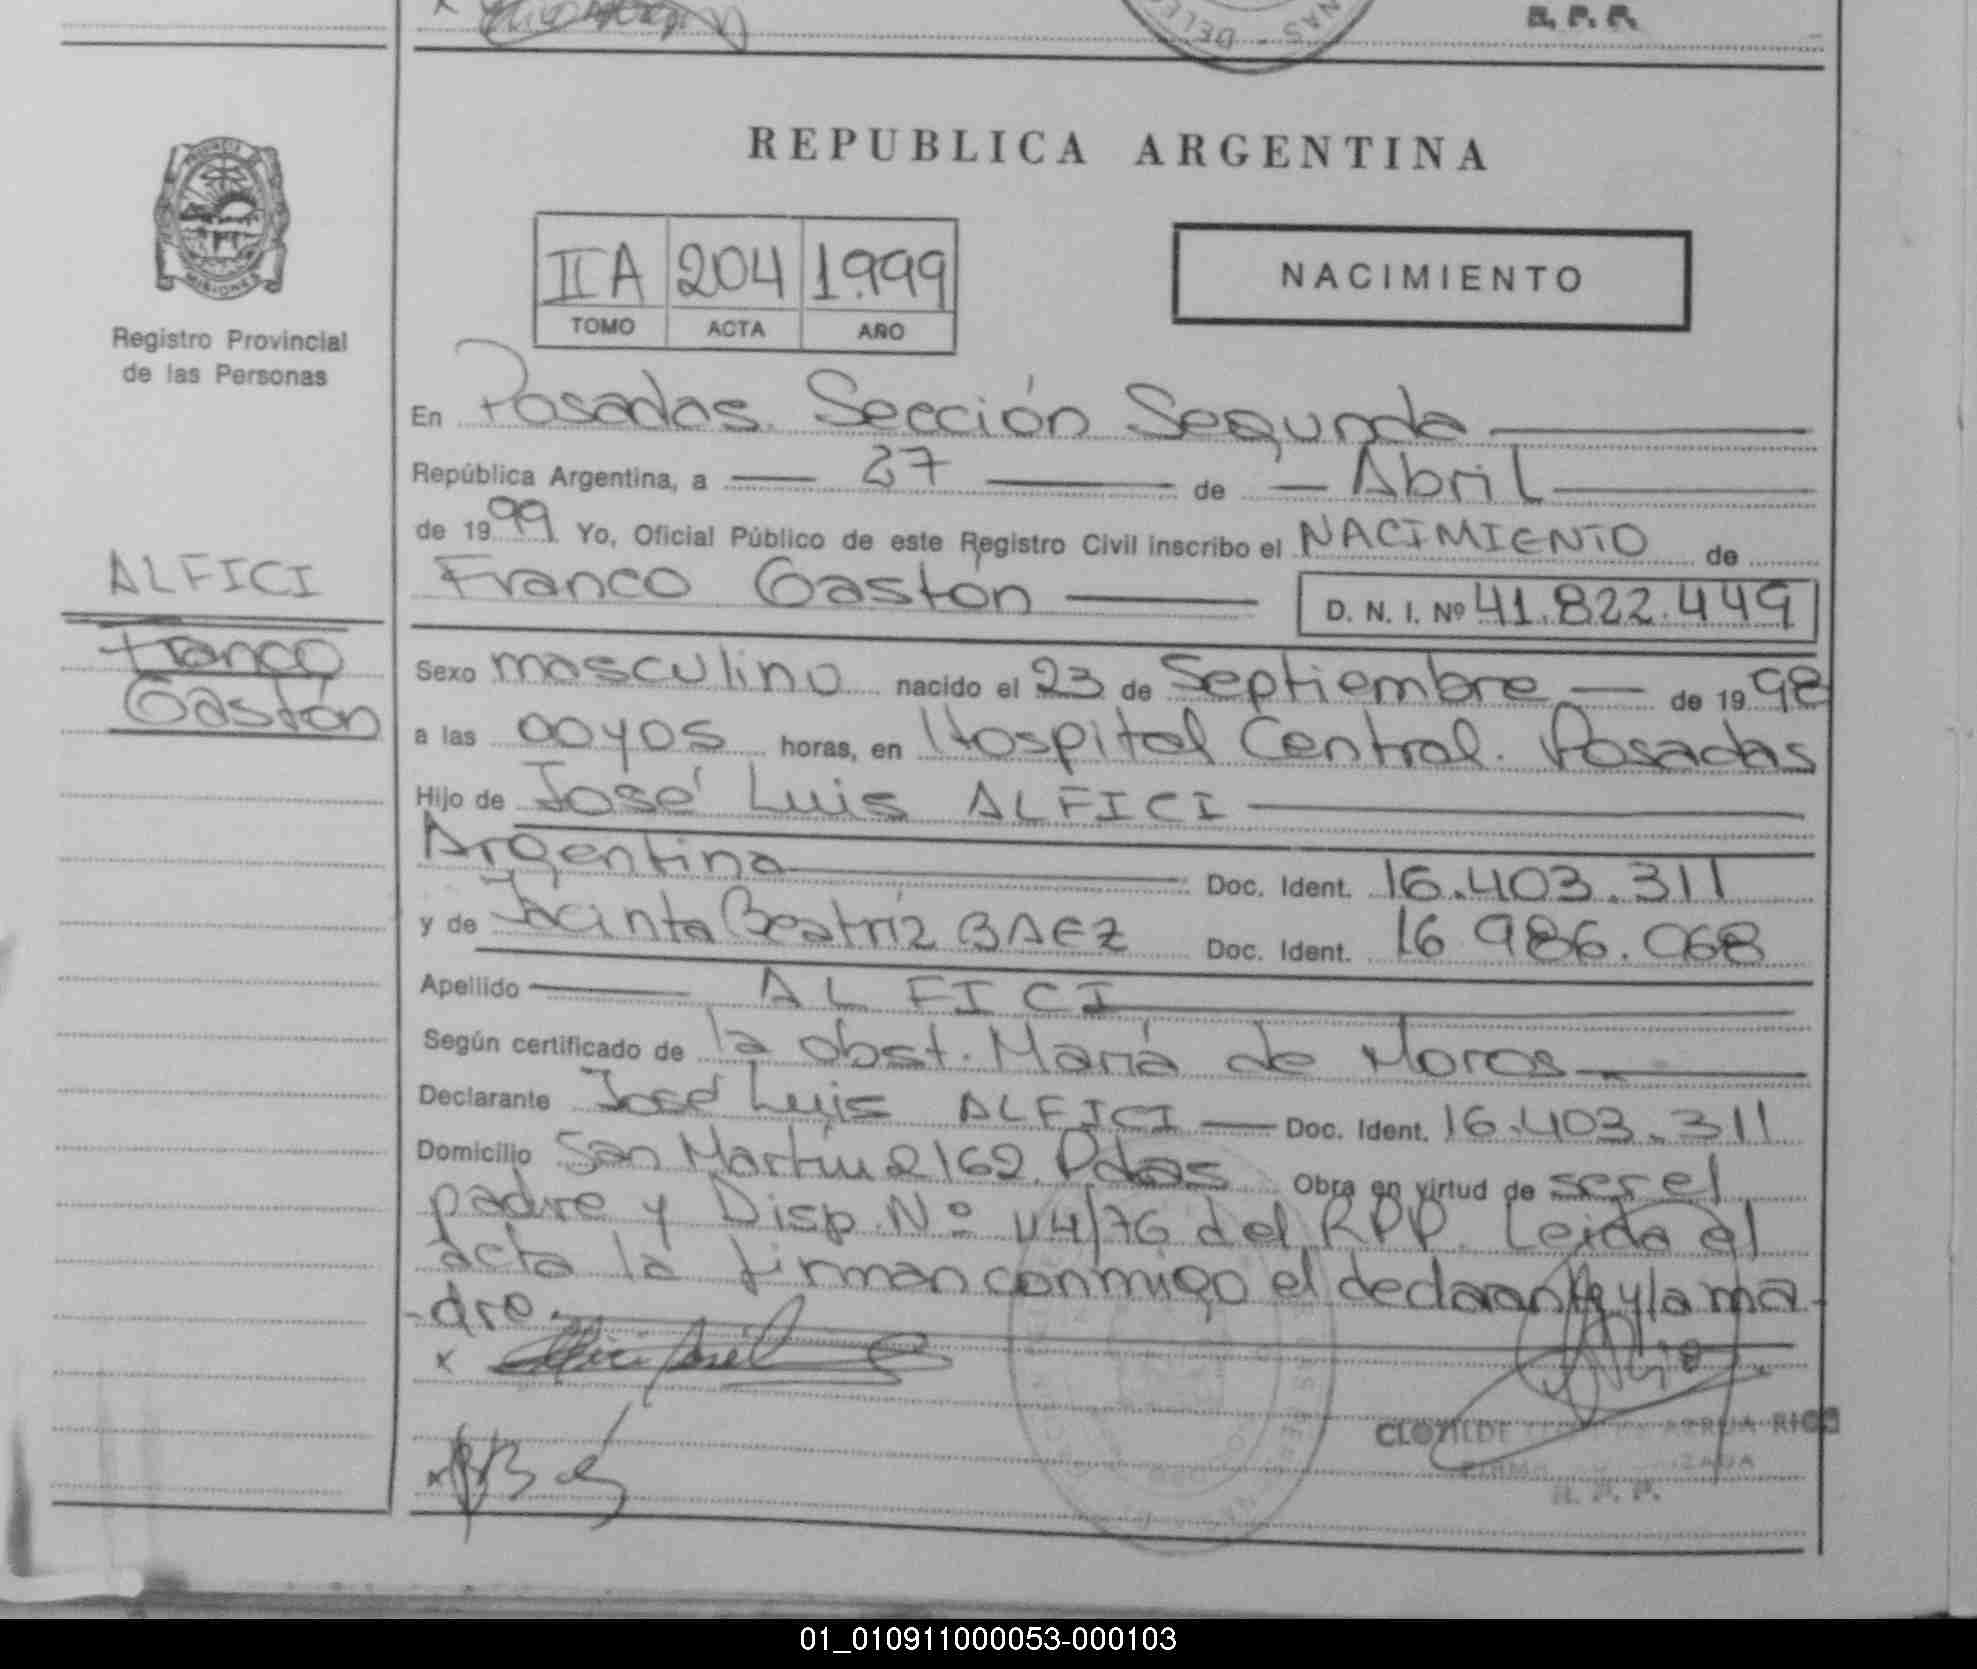 R. P. P.
REPUBLICA ARGENTINA
PROVINCIA DE
MISIONES
Registro Provincial
de las Personas
IIA 204 1.999
TOMO ACTA AÑO
NACIMIENTO
En Posadas. Sección Segunda
República Argentina, a 27 de Abril
de 1999 Yo, Oficial Público de este Registro Civil inscribo el NACIMIENTO de
ALFICI
Franco
Gastón
Franco Gaston D. N. I. Nº 41.822.449
Sexo masculino nacido el 23 de Septiembre de 1998
a las 00y05 horas, en Hospital Central. Posadas
Hijo de José Luis ALFICI
Argentina Doc. Ident. 16.403.311
y de Jacinta Beatríz BAEZ Doc. Ident. 16 986.068
Apellido ALFICI
Según certificado de la obst. María de Moros
Declarante José Luis ALFICI Doc. Ident. 16.403.311
Domicilio San Martín 2162. Pdas Obra en virtud de ser el
padre y Disp. Nº 114/76 del RPP. Leida el
acta la firman conmigo el declarante y la ma
-dre.
x
x
CLOTILDE ARRUA RIOS
R. P. P.
01_010911000053-000103